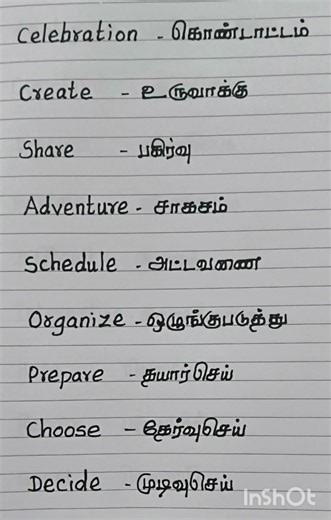 Celebration - கொண்டாட்டம்
Create - உருவாக்கு
Share - பகிர்வு
Adventure - சாகசம்
Schedule - அட்டவணை
Organize - ஒழுங்குபடுத்து
Prepare - தயார்செய்
Choose - தேர்வுசெய்
Decide - முடிவுசெய்
InShOt